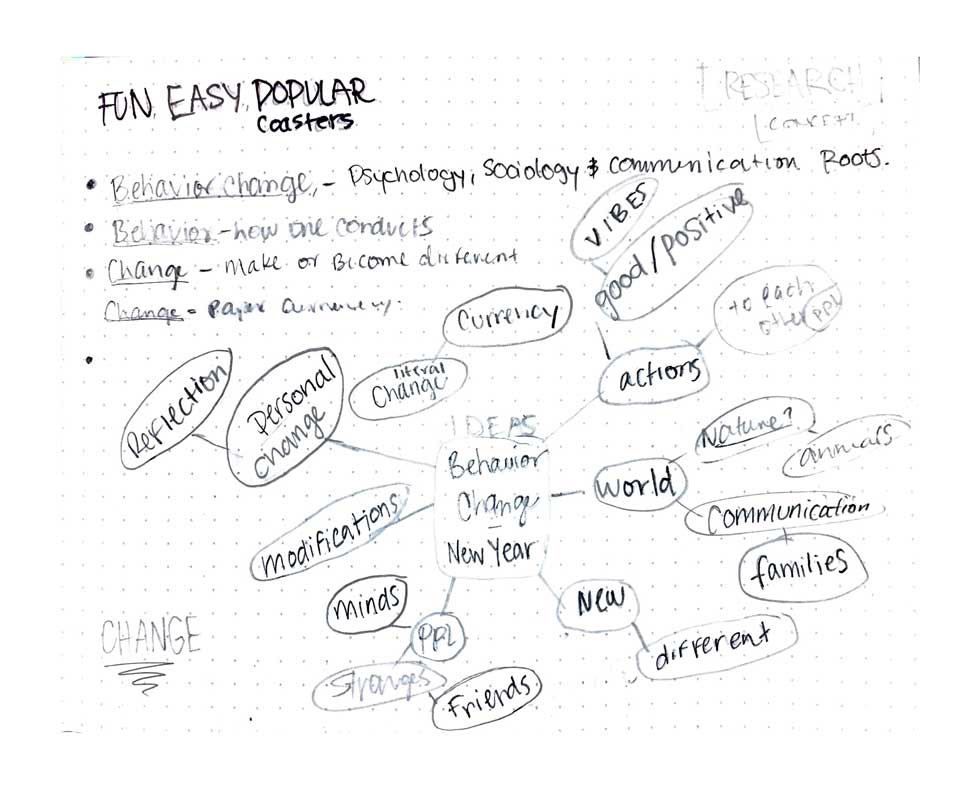 FUN, EASY, POPULAR
coasters
[RESEARCH]
• Behavior change, - Psychology, Sociology & communication Roots.
• Behavior - how one conducts
• Change - Make or Become different
Change - Paper Currency.
•
VIBES
good/positive
to each
other PPL
actions
Currency
literal
Change
Reflection
Personal
change
IDEAS
Behavior
Change
New Year
World
Nature?
animals
Communication
families
modifications
minds
PPL
Stranges
Friends
New
different
CHANGE